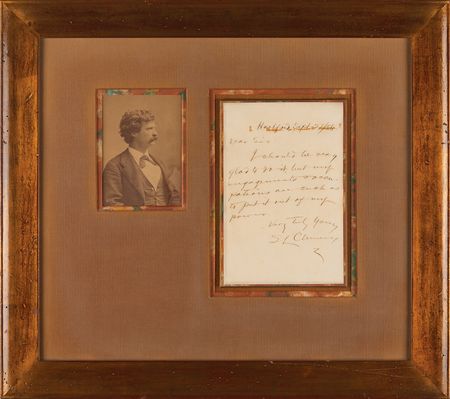 Hartford, Sept
Dear Sir:
I should be very
glad to do it but my
engagements & occu
pations are such as
to put it out of my
power.
Very Truly Yours
S L Clemens